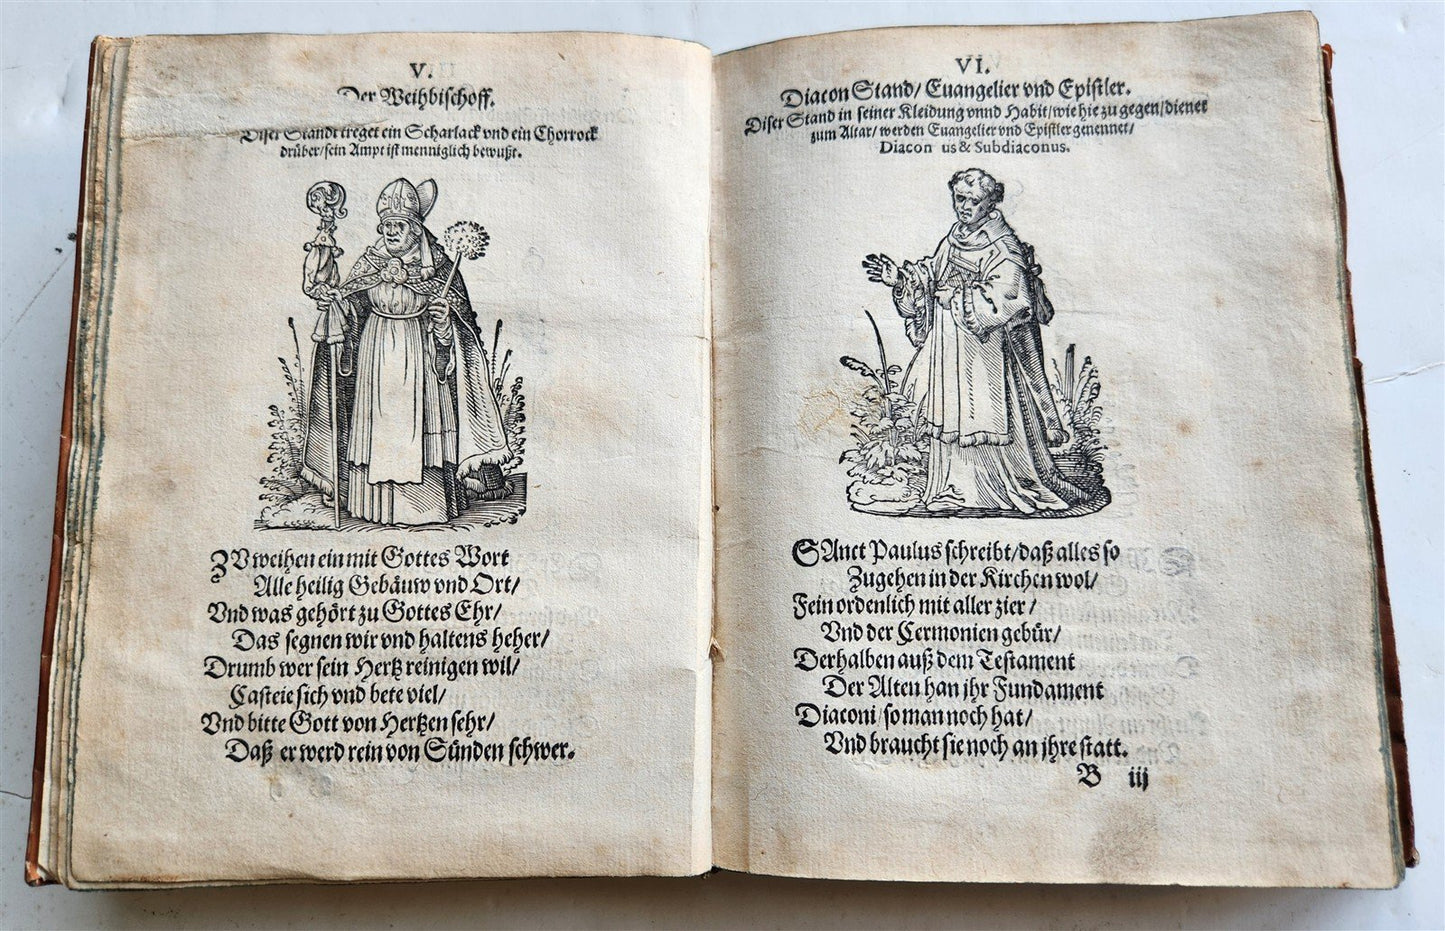 V.
Der Weihbischoff.
Diser Standt treget ein Scharlack vnd ein Chorrock
drüber/sein Ampt ist menniglich bewußt.
ZV weihen ein mit Gottes Wort
Alle heilig Gebäuw vnd Ort/
Vnd was gehört zu Gottes Ehr/
Das segnen wir vnd haltens heher/
Drumb wer sein Hertz reinigen wil/
Casteie sich vnd bete viel/
Vnd bitte Gott von Hertzen sehr/
Daß er werd rein von Sünden schwer.
VI.
Diacon Stand/ Euangelier vnd Epistler.
Diser Stand in seiner Kleidung vnnd Habit/wie hie zu gegen/dienet
zum Altar/ werden Euangelier vnd Epistler genennet/
Diacon us & Subdiaconus.
SAnct Paulus schreibt/daß alles so
Zugehen in der Kirchen wol/
Fein ordenlich mit aller zier/
Vnd der Cermonien gebür/
Derhalben auß dem Testament
Der Alten han jhr Fundament
Diaconi/so man noch hat/
Vnd braucht sie noch an jhre statt.
B iij